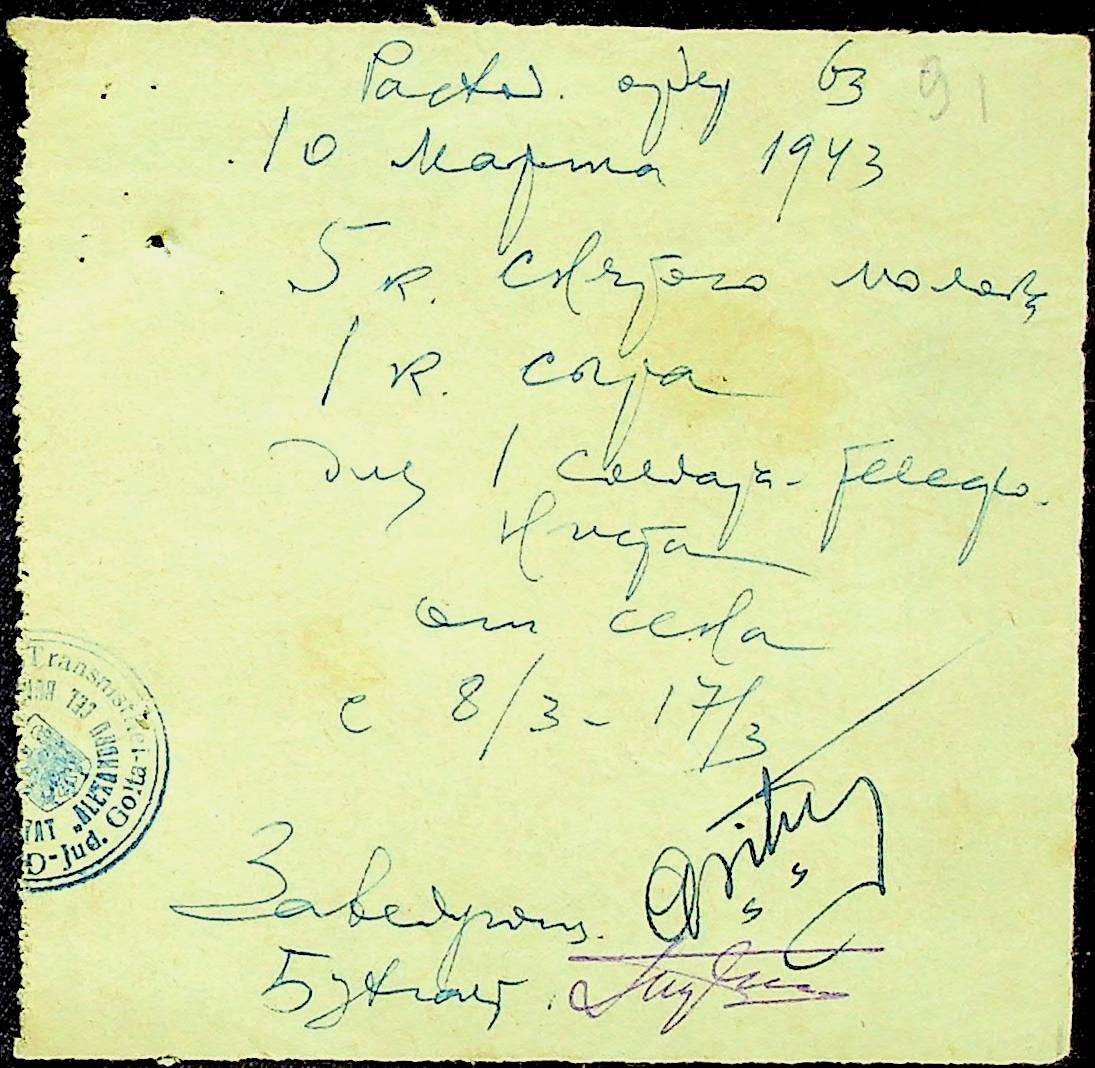 Расход. ордер 63 91
10 Марта 1943
5 к. снятого молока
1 к. сыра
для 1 солдата-телефо-
ниста
от села
с 8/3 - 17/3
Transnistrei
ALEXANDRU CEL
Jud. Golta
Заведующ.
Бухгалт.